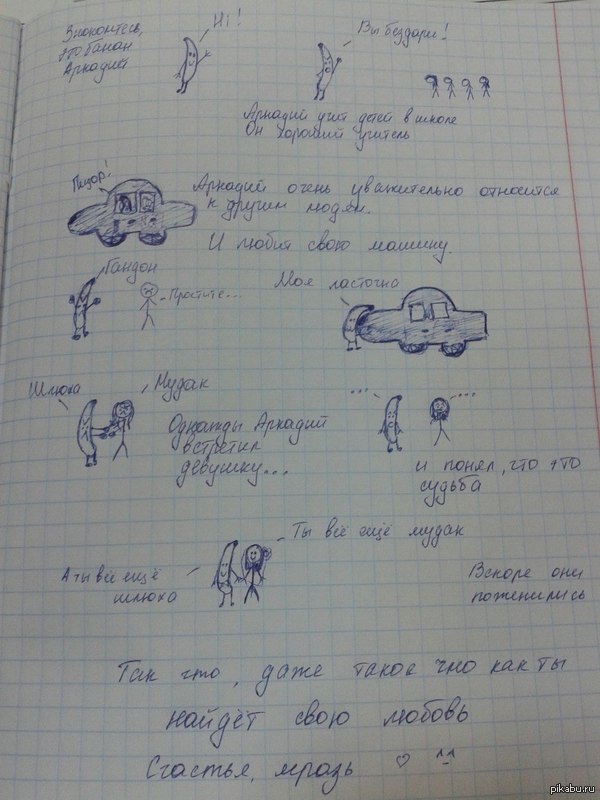 Знакомтесь,
это банан
Аркадий
Hi!
Вы бездари!
Аркадий учит детей в школе
Он хороший учитель
Пидор!
Аркадий очень уважительно относится
к другим людям.
И любит свою машину.
Гандон
Простите...
Моя ласточка
Шлюха
Мудак
Однажды Аркадий
встретил
девушку...
...
...
и понял, что это
судьба
Ты всё ещё мудак
А ты всё ещё
шлюха
Вскоре они
поженились
Так что, даже такое чмо как ты
найдёт свою любовь
Счастья, мразь ♡ ^^
pikabu.ru